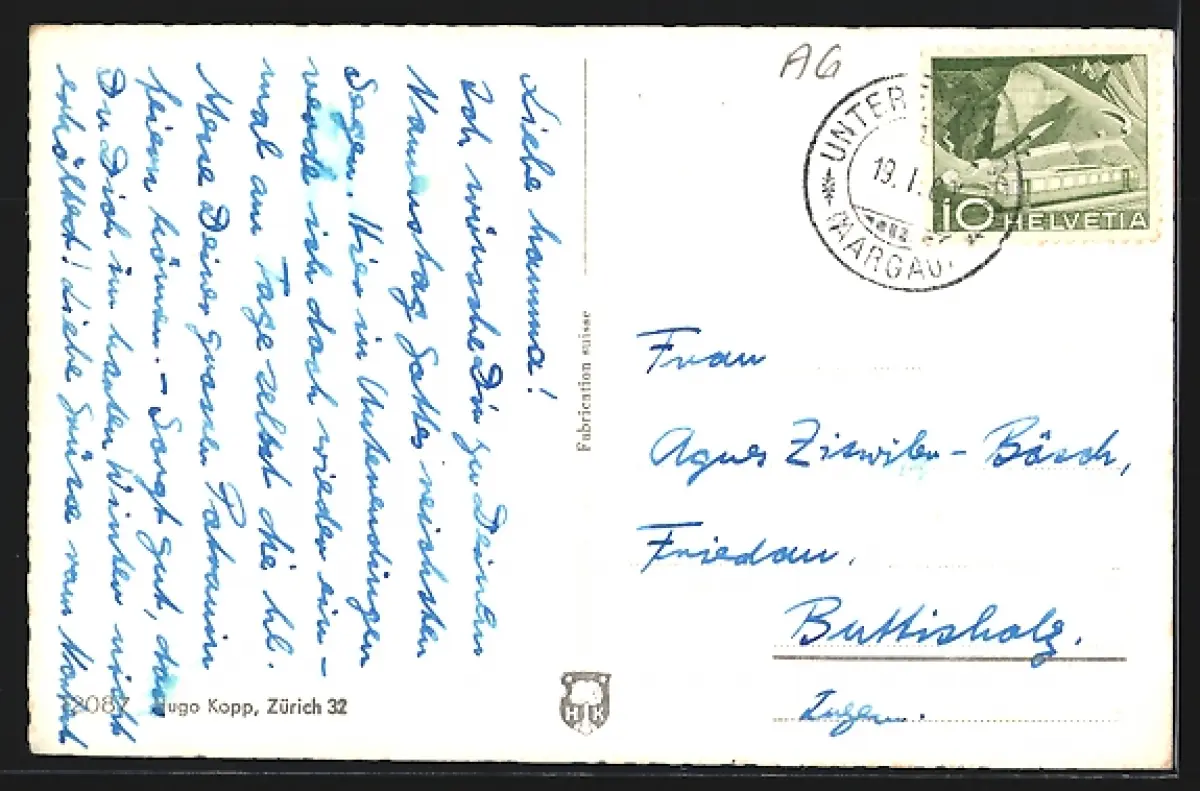 Liebe Mamma!
Ich wünsche Dir zu Deinem
Namenstag Gottes reichsten
Segen. Hier in Unterendingen
werde ich doch wieder ein-
mal am Tage selbst die hl.
Messe Deiner grossen Patronin
feiern können. – Sorgt gut, dass
Du Dich im harten Winter nicht
erkältest! Liebe Grüsse vom
2087 Hugo Kopp, Zürich 32
Fabrication suisse
H K
AG
UNTER
19. I.
(AARGAU)
10 HELVETIA
Frau
Agnes Ziswiler - Bösch,
Friedau.
Buttisholz.
Luzern.